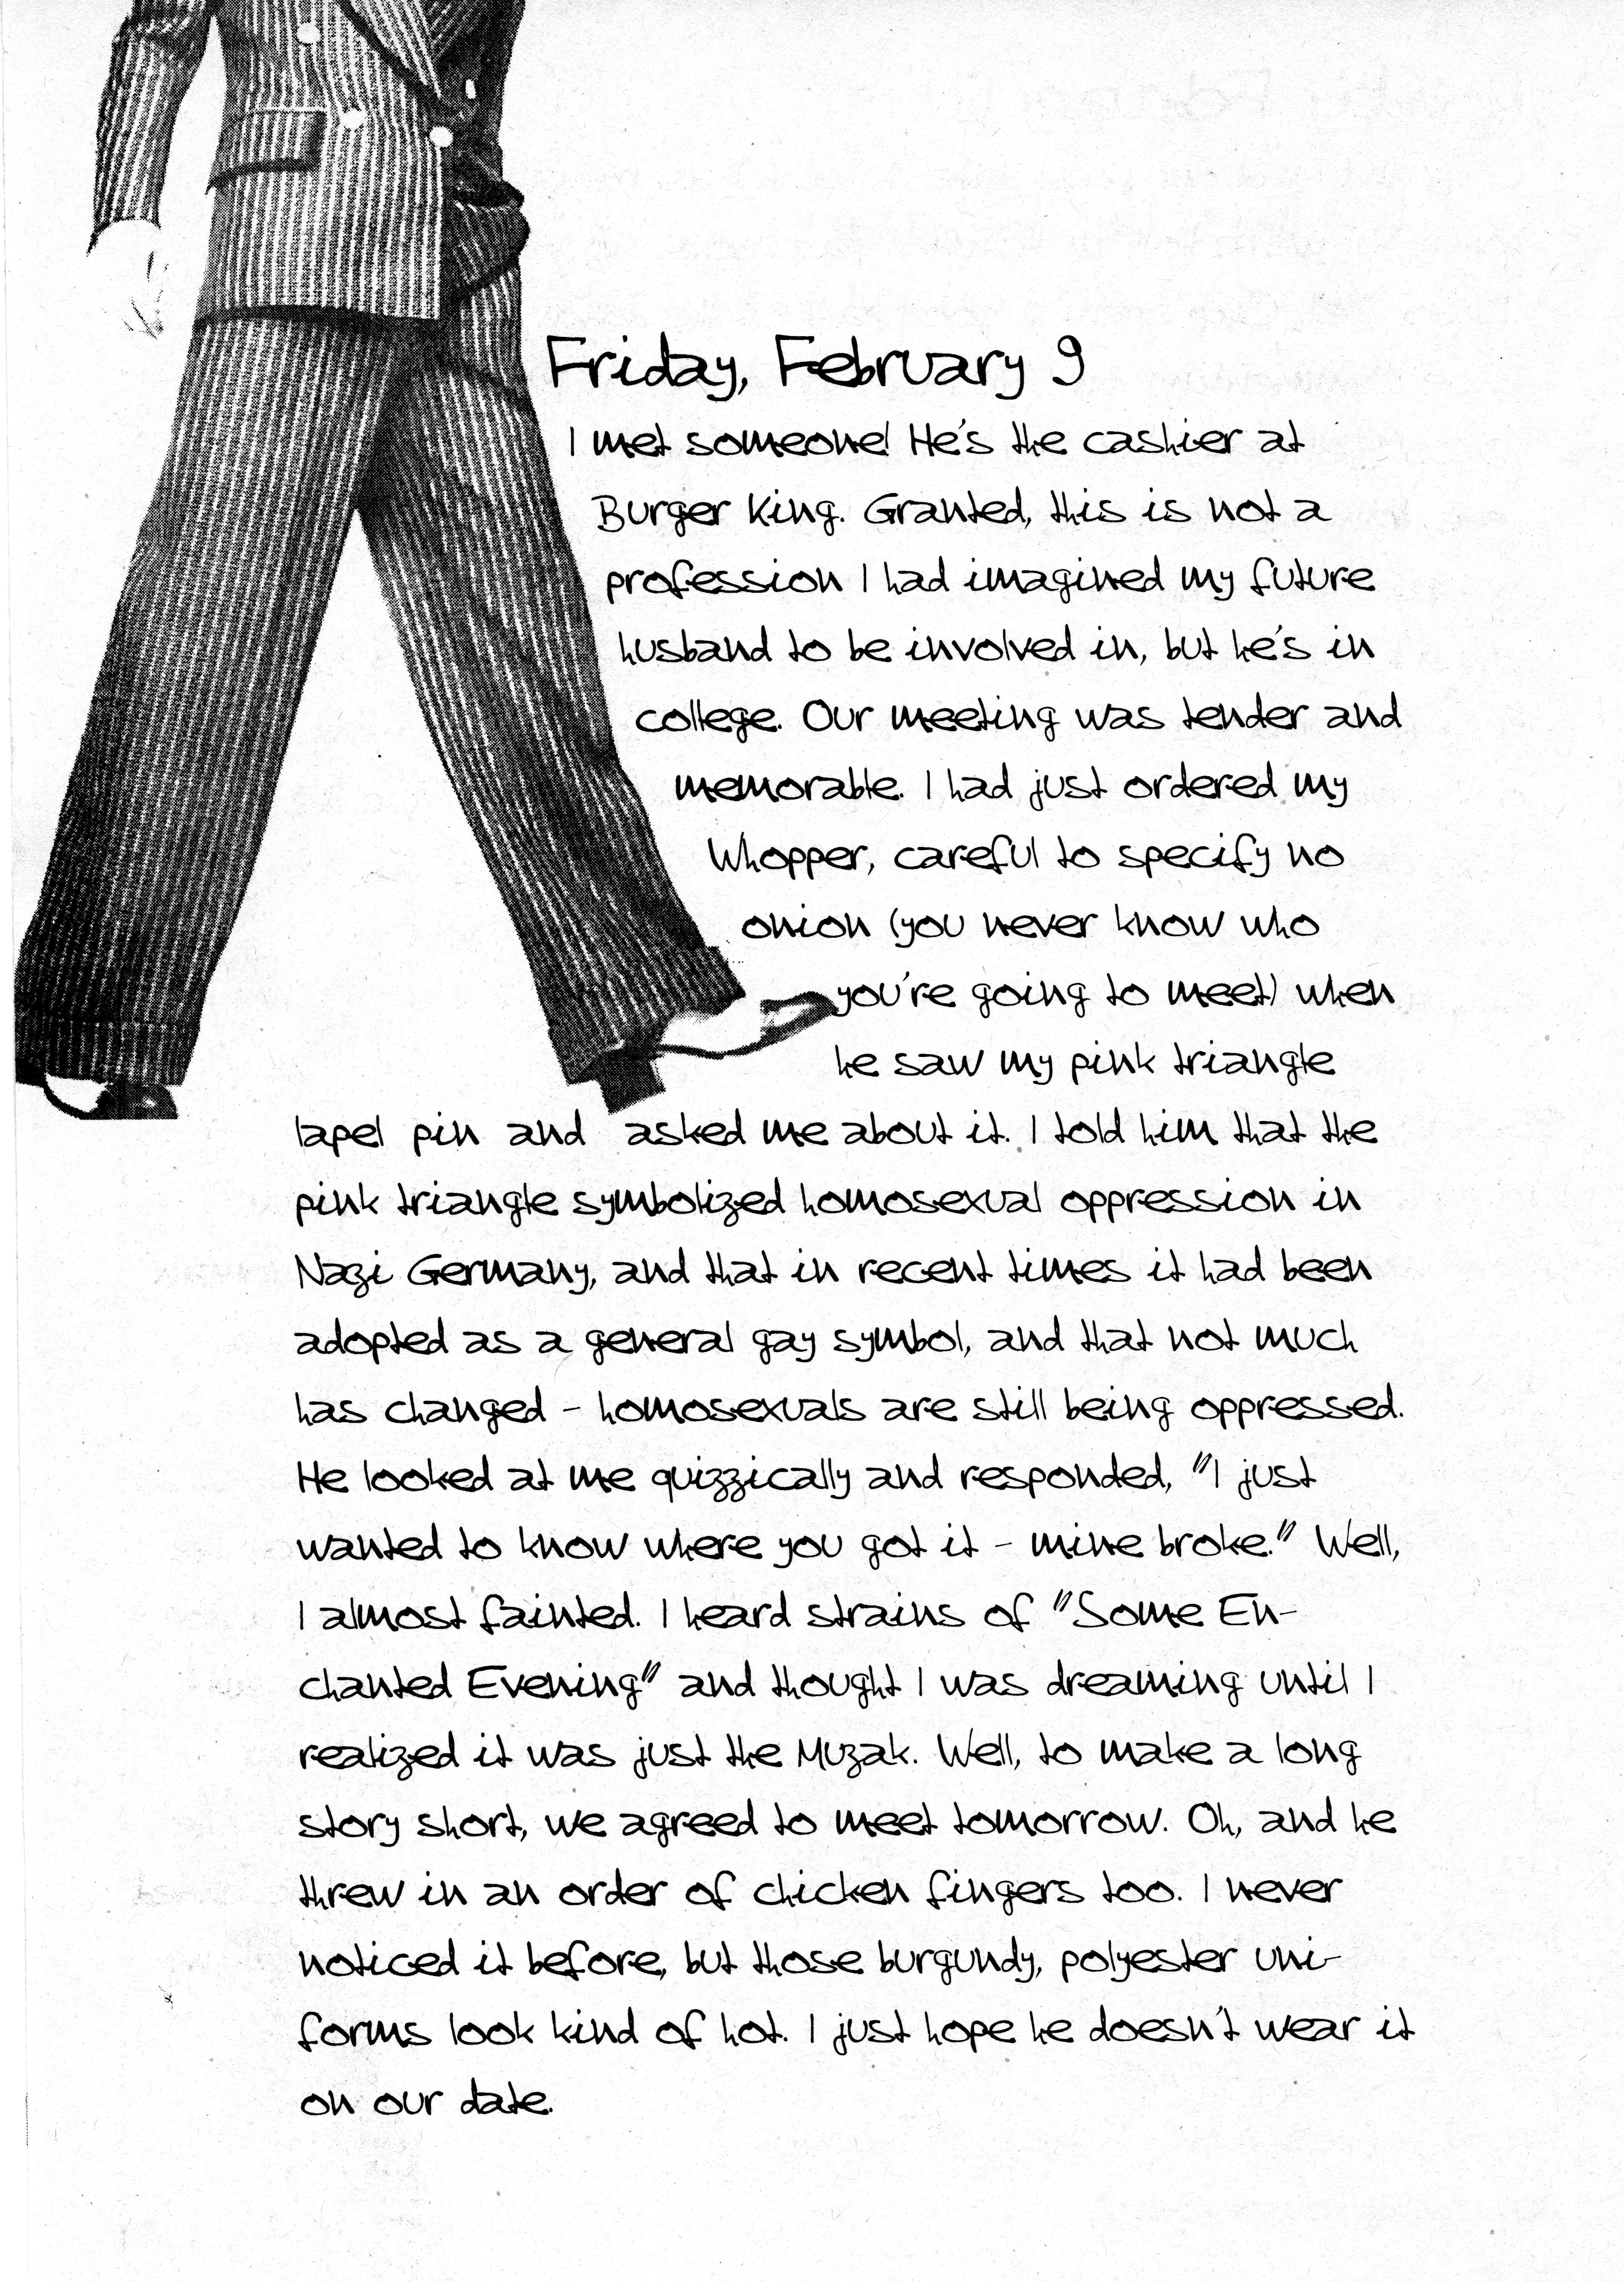 Friday, February 9
I met someone! He's the cashier at
Burger King. Granted, this is not a
profession I had imagined my future
husband to be involved in, but he's in
college. Our meeting was tender and
memorable. I had just ordered my
Whopper, careful to specify no
onion (you never know who
you're going to meet) when
he saw my pink triangle
lapel pin and asked me about it. I told him that the
pink triangle symbolized homosexual oppression in
Nazi Germany, and that in recent times it had been
adopted as a general gay symbol, and that not much
has changed - homosexuals are still being oppressed.
He looked at me quizzically and responded, "I just
wanted to know where you got it - mine broke." Well,
I almost fainted. I heard strains of "Some En-
chanted Evening" and thought I was dreaming until I
realized it was just the Muzak. Well, to make a long
story short, we agreed to meet tomorrow. Oh, and he
threw in an order of chicken fingers too. I never
noticed it before, but those burgundy, polyester uni-
forms look kind of hot. I just hope he doesn't wear it
on our date.